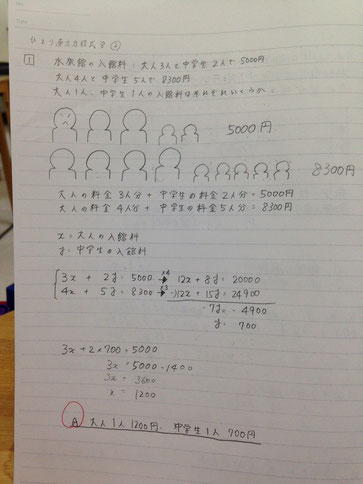 ひとり連立方程式 ②
1 水族館の入館料：大人3人と中学生2人で5000円
大人4人と中学生5人で8300円
大人1人、中学生1人の入館料はそれぞれいくらか。
5000円
8300円
大人の料金 3人分 + 中学生の料金 2人分 = 5000円
大人の料金 4人分 + 中学生の料金 5人分 = 8300円
x = 大人の入館料
y = 中学生の入館料
3x + 2y = 5000 ×4 → 12x + 8y = 20000
4x + 5y = 8300 ×3 → -)12x + 15y = 24900
-7y = -4900
y = 700
3x + 2×700 = 5000
3x = 5000 - 1400
3x = 3600
x = 1200
A 大人1人 1200円、中学生1人 700円